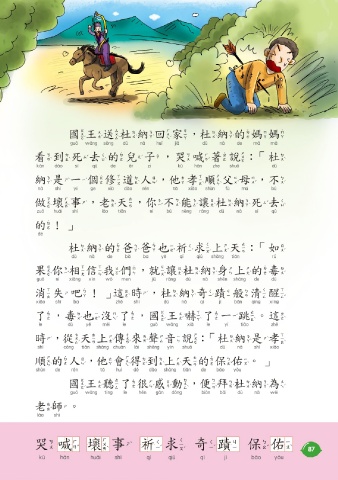 國王送杜納回家，杜納的媽媽
看到死去的兒子，哭喊著說：「杜
納是一個修道人，他孝順父母，不
做壞事，老天，你不能讓杜納死去
的！」
杜納的爸爸也祈求上天：「如
果你相信我們，就讓杜納身上的毒
消失吧！」這時，杜納奇蹟般清醒
了，毒也沒了，國王嚇了一跳。這
時，從天上傳來聲音說：「杜納是孝
順的人，他會得到上天的保佑。」
國王聽了很感動，便拜杜納為
老師。
哭 喊 壞事 祈求 奇蹟 保佑
kū hǎn huài shì qí qiú qí jì bǎo yòu
87